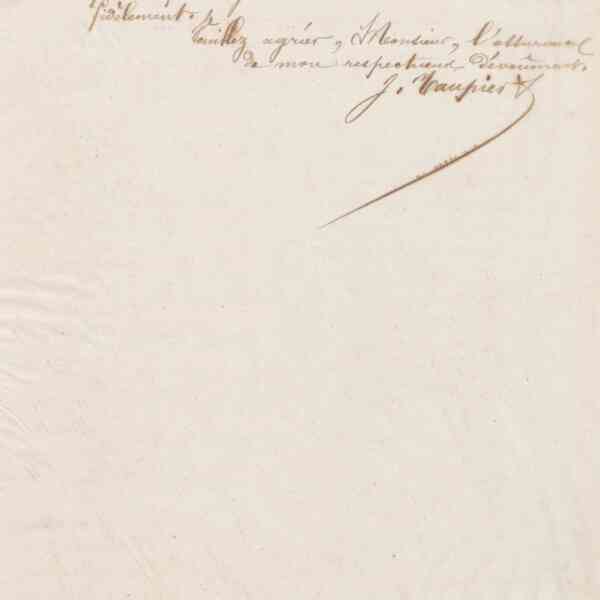 fidèlement.
Veuillez agréer, Monsieur, l'assurance
de mon respectueux dévoûment.
J. Taupier